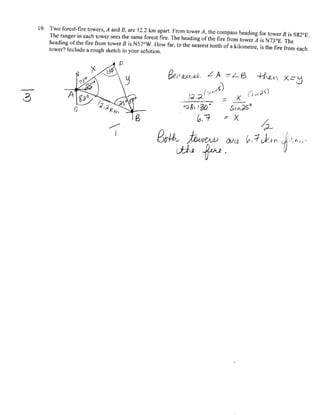 19. Two forest-fire towers, A and B, are 12.2 km apart. From tower A, the compass heading for tower B is S82°E.
The ranger in each tower sees the same forest fire. The heading of the fire from tower A is N73°E. The
heading of the fire from tower B is N57°W. How far, to the nearest tenth of a kilometre, is the fire from each
tower? Include a rough sketch in your solution.
F
130°
N
X
y
73°
25°
A
82°
25°
12.2km
B
S
3
1
Because ∠A = ∠B then x=y
12.2 = X (sin25)
sin130° sin25°
6.7 = X
2
Both towers are 6.7 km from
the fire.